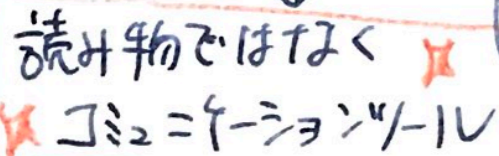 読み物ではなく
コミュニケーションツール